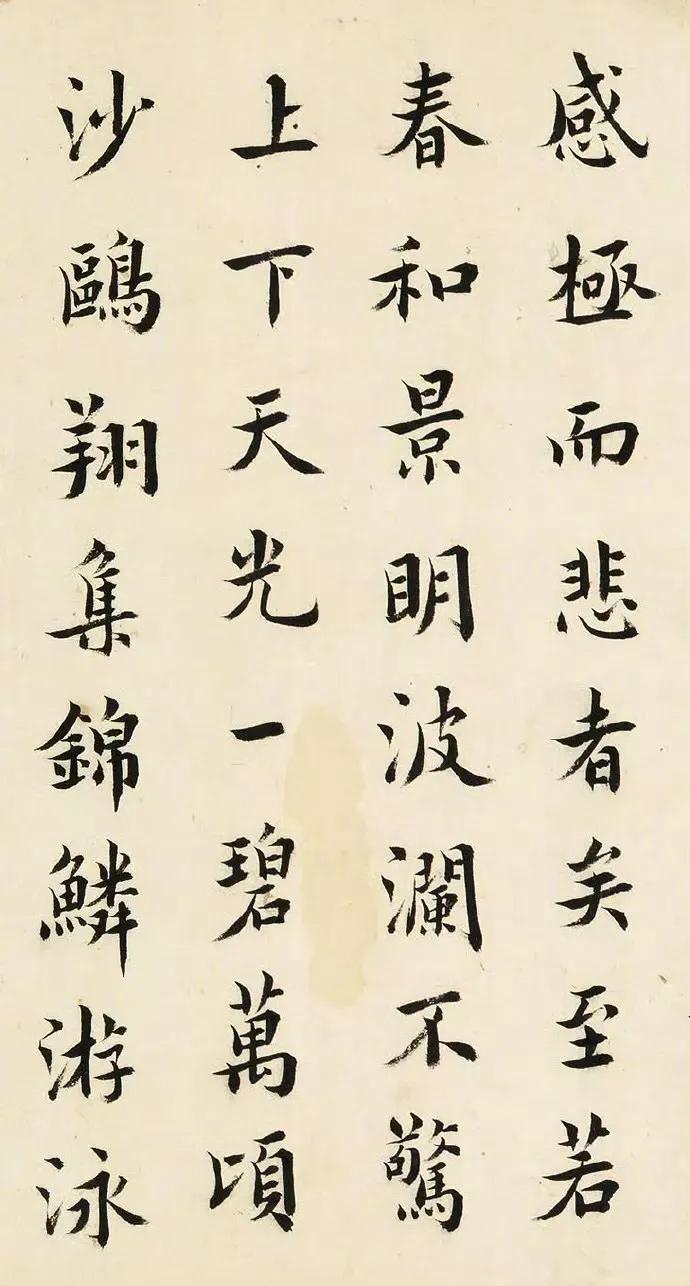 感極而悲者矣至若
春和景明波瀾不驚
上下天光一碧萬頃
沙鷗翔集錦鱗游泳